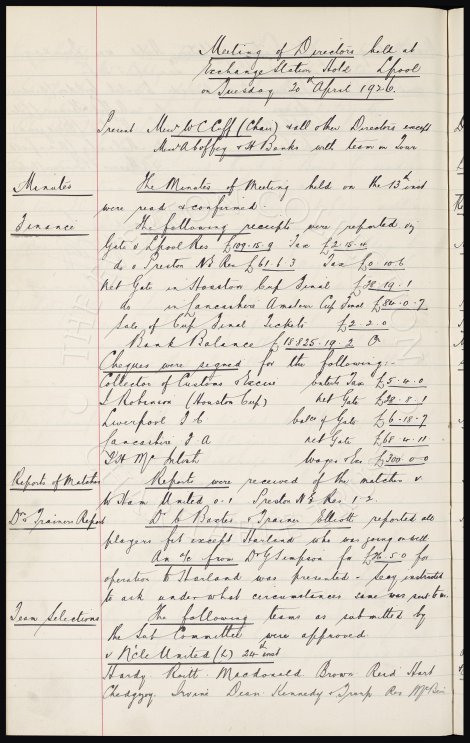 Meeting of Directors held at
Exchange Station Hotel L'pool
on Tuesday 20th April 1926.
Present Messrs W C Cuff (Chair) & all other Directors except
Messrs A Coffey & H Banks with team on Tour
Minutes
The Minutes of Meeting held on the 13th inst
were read & confirmed.
Finance
The following receipts were reported viz
Gate v L'pool Res £109.15.9 Tax £2.15.4
do v Preston N E Res £61.6.3 Tax £0.10.6
Net Gate in Houston Cup Final £28.19.1
do in Lancashire Amateur Cup Final £84.0.7
Sale of Cup Final Tickets £2.2.0
Bank Balance £18825.19.2 Cr
Cheques were signed for the following:-
Collector of Customs & Excise Tax £5.4.0
Robinson (Houston Cup) net Gate £28.8.1
Liverpool F C balce of Gate £6.18.7
Lancashire F A net Gate £68.4.11
T H McIntosh Wages & Exs £300.0.0
Reports of Matches
Reports were received of the matches v
W Ham United 0-1 Preston N E Res 1-2
Drs & Trainers Report
Dr C Baxter & Trainer Elliott reported all
players fit except Harland who was going on well
An a/c from Dr G Simpson for £26.5.0 for
operation to Harland was presented - Secy instructed
to ask under what circumstances same was sent to us.
Team Selections
The following teams as submitted by
the Sub Committee were approved
v N'cle United (L) 24th inst
Hardy Raitt Macdonald Brown Reid Hart
Chedgzoy Irvine Dean Kennedy & Troup Res McBain